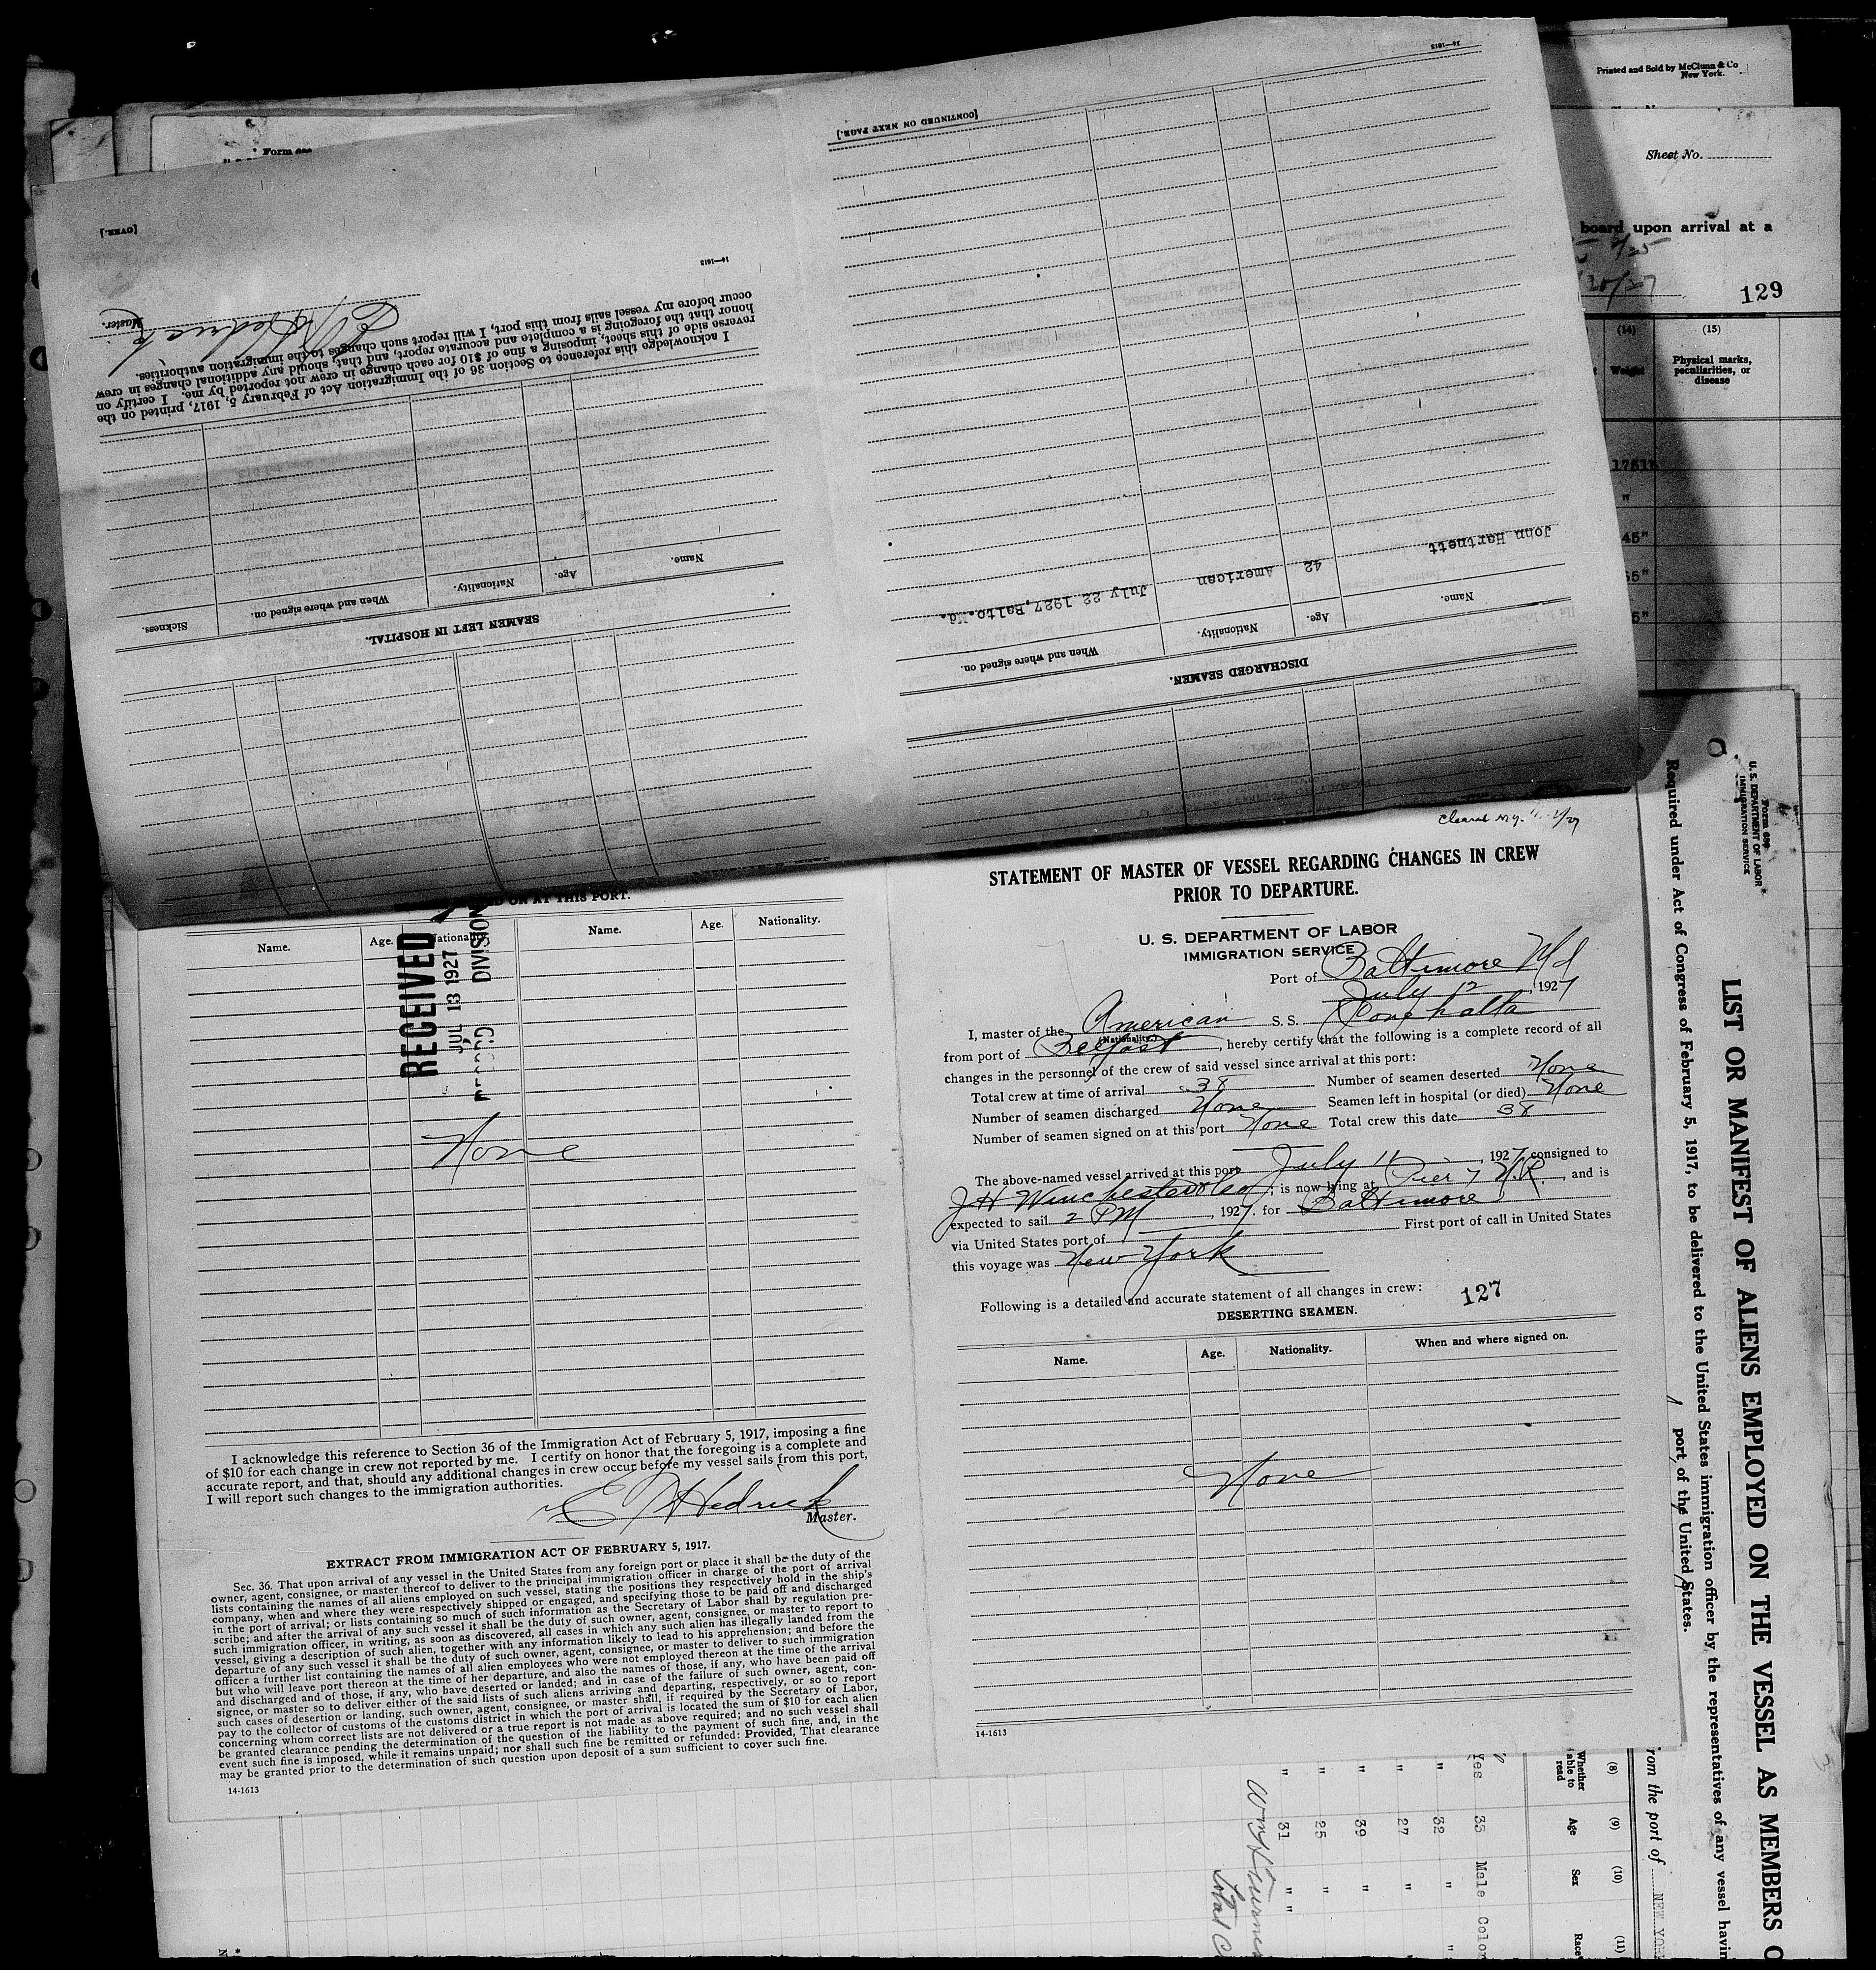 Printed and Sold by McClunn & Co
New York.
Sheet No.
board upon arrival at a
129
(14)
(15)
Weight
Physical marks,
peculiarities, or
disease
14—1613
[CONTINUED ON NEXT PAGE.]
John Hartnett 42 American July 22 1927, Balto. Md.
Name. Age. Nationality. When and where signed on.
DISCHARGED SEAMEN.
[OVER.]
14—1613
Master.
I acknowledge this reference to Section 36 of the Immigration Act of February 5, 1917, printed on the
reverse side of this sheet, imposing a fine of $10 for each change in crew not reported by me. I certify on
honor that the foregoing is a complete and accurate report, and that, should any additional changes in crew
occur before my vessel sails from this port, I will report such changes to the immigration authorities.
Name. Age. Nationality. When and where signed on. Sickness.
SEAMEN LEFT IN HOSPITAL.
ON AT THIS PORT.
Name. Age. Nationality. Name. Age. Nationality.
RECEIVED
JUL 13 1927
DIVISION
None
I acknowledge this reference to Section 36 of the Immigration Act of February 5, 1917, imposing a fine
of $10 for each change in crew not reported by me. I certify on honor that the foregoing is a complete and
accurate report, and that, should any additional changes in crew occur before my vessel sails from this port,
I will report such changes to the immigration authorities.
Hedrick
Master.
EXTRACT FROM IMMIGRATION ACT OF FEBRUARY 5, 1917.
Sec. 36. That upon arrival of any vessel in the United States from any foreign port or place it shall be the duty of the
owner, agent, consignee, or master thereof to deliver to the principal immigration officer in charge of the port of arrival
lists containing the names of all aliens employed on such vessel, stating the positions they respectively hold in the ship's
company, when and where they were respectively shipped or engaged, and specifying those to be paid off and discharged
in the port of arrival; or lists containing so much of such information as the Secretary of Labor shall by regulation pre-
scribe; and after the arrival of any such vessel it shall be the duty of such owner, agent, consignee, or master to report to
such immigration officer, in writing, as soon as discovered, all cases in which any such alien has illegally landed from the
vessel, giving a description of such alien, together with any information likely to lead to his apprehension; and before the
departure of any such vessel it shall be the duty of such owner, agent, consignee, or master to deliver to such immigration
officer a further list containing the names of all alien employees who were not employed thereon at the time of the arrival
but who will leave port thereon at the time of her departure, and also the names of those, if any, who have been paid off
and discharged and of those, if any, who have deserted or landed; and in case of the failure of such owner, agent, con-
signee, or master so to deliver either of the said lists of such aliens arriving and departing, respectively, or so to report
such cases of desertion or landing, such owner, agent, consignee, or master shall, if required by the Secretary of Labor,
pay to the collector of customs of the customs district in which the port of arrival is located the sum of $10 for each alien
concerning whom correct lists are not delivered or a true report is not made as above required; and no such vessel shall
be granted clearance pending the determination of the question of the liability to the payment of such fine, and, in the
event such fine is imposed, while it remains unpaid; nor shall such fine be remitted or refunded: Provided, That clearance
may be granted prior to the determination of such question upon deposit of a sum sufficient to cover such fine.
14-1613
STATEMENT OF MASTER OF VESSEL REGARDING CHANGES IN CREW
PRIOR TO DEPARTURE.
U. S. DEPARTMENT OF LABOR
IMMIGRATION SERVICE
Port of Baltimore Md
July 12, 1927
I, master of the American S. S. Conehatta
(Nationality.)
from port of Belfast, hereby certify that the following is a complete record of all
changes in the personnel of the crew of said vessel since arrival at this port:
Total crew at time of arrival 38 Number of seamen deserted None
Number of seamen discharged None Seamen left in hospital (or died) None
Number of seamen signed on at this port None Total crew this date 38
The above-named vessel arrived at this port July 11, 1927, consigned to
J H Winchester & Co, is now lying at Pier 7 N.R., and is
expected to sail 2 PM, 1927. for Baltimore
via United States port of First port of call in United States
this voyage was New York
Following is a detailed and accurate statement of all changes in crew:
127
DESERTING SEAMEN.
Name. Age. Nationality. When and where signed on.
None
14-1613
Form 699
U. S. DEPARTMENT OF LABOR
IMMIGRATION SERVICE
LIST OR MANIFEST OF ALIENS EMPLOYED ON THE VESSEL AS MEMBERS O
Required under Act of Congress of February 5, 1917, to be delivered to the United States immigration officer by the representatives of any vessel havin
port of the United States.
rom the port of NEW YOR
(8) (9) (10) (11)
Whether
able to
read
Age Sex Race
Yes 35 Male Color
" 32 " "
" 27 "
" 39 "
" 25 "
" 31 " "